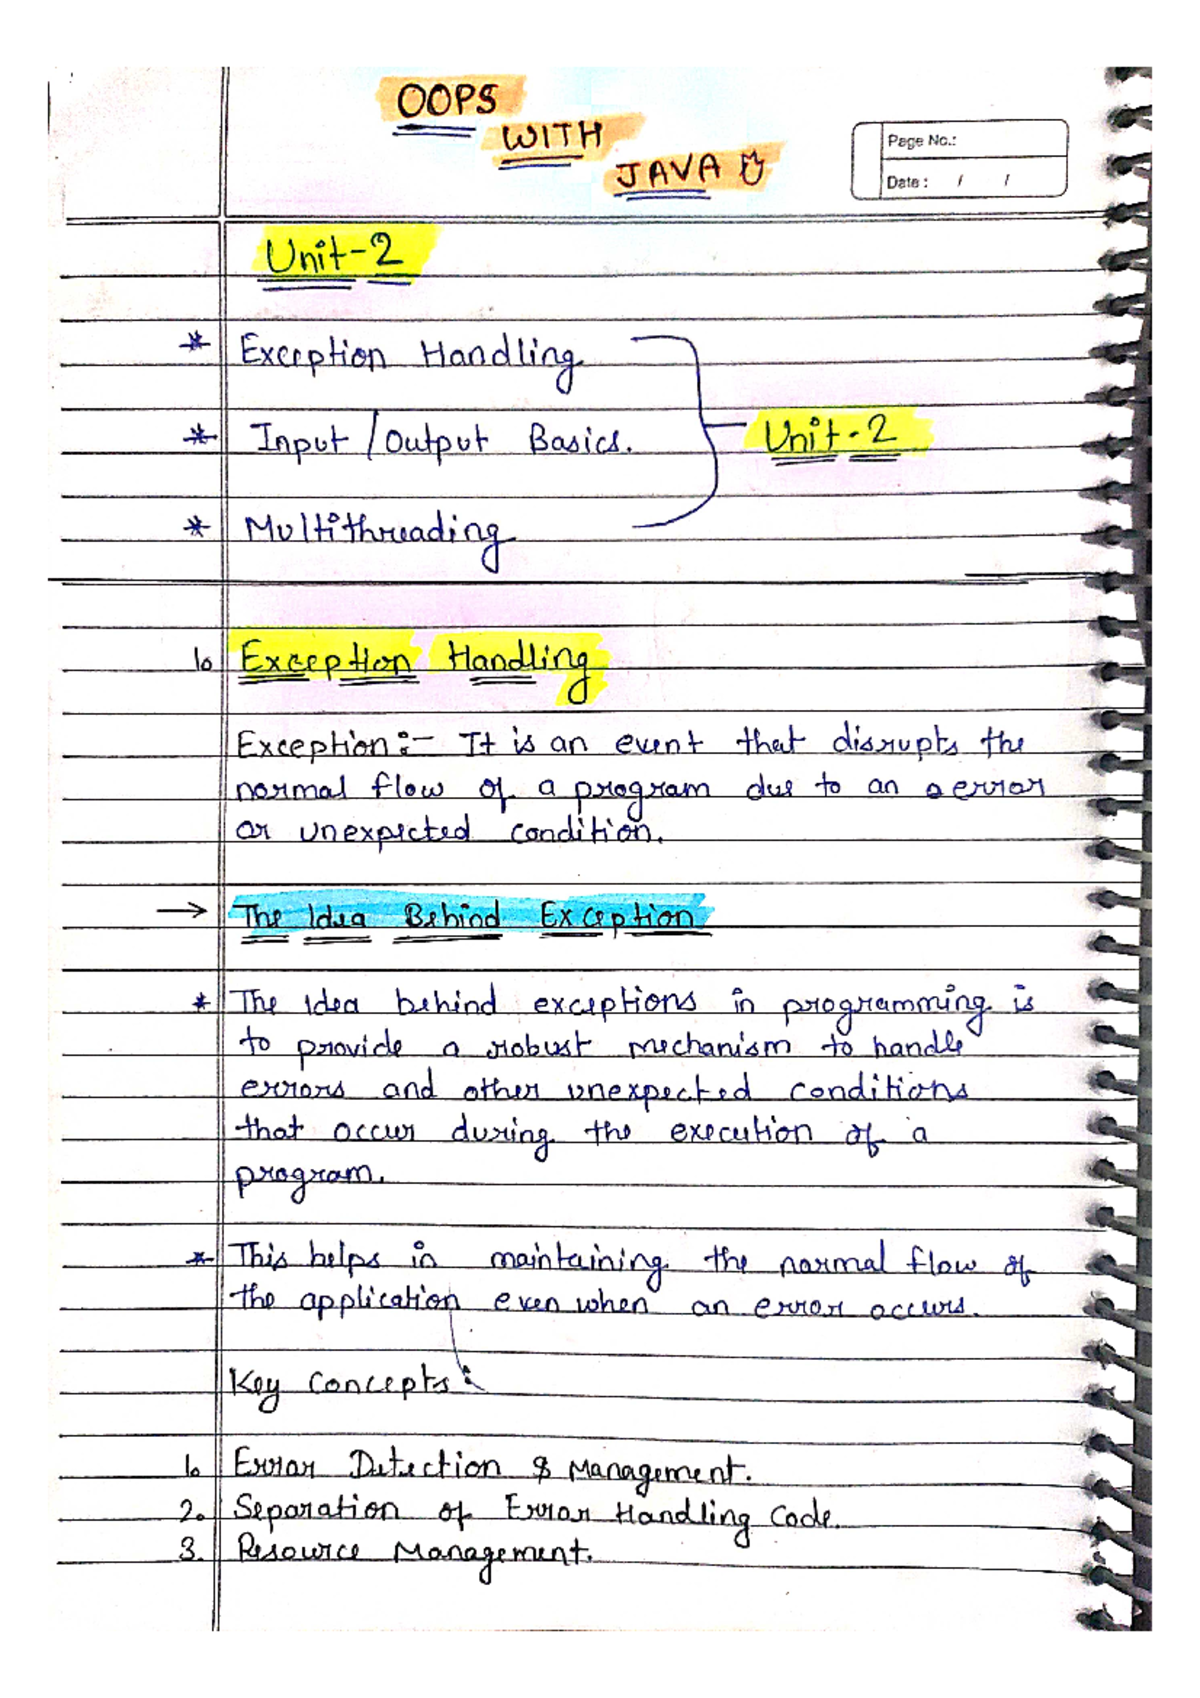 OOPS
WITH
JAVA
Page No.:
Date : / /
Unit-2
* Exception Handling
* Input /Output Basics.
Unit-2
* Multithreading
1. Exception Handling
Exception :- It is an event that disrupts the
normal flow of a program due to an error
or unexpected condition.
→ The Idea Behind Exception
* The Idea behind exceptions in programming is
to provide a robust mechanism to handle
errors and other unexpected conditions
that occur during the execution of a
program.
* This helps in maintaining the normal flow of
the application even when an error occurs.
Key Concepts :
1. Error Detection & Management.
2. Separation of Error Handling Code.
3. Resource Management.